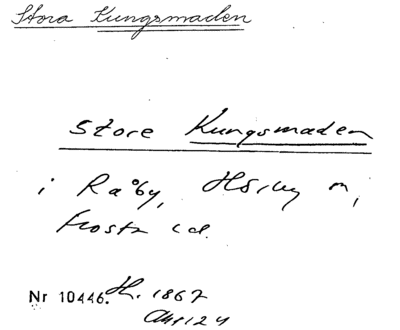 Stora Kungsmaden
Store Kungsmaden
i Råby, Hörby n,
Frosta
Nr 10446. H. 1867